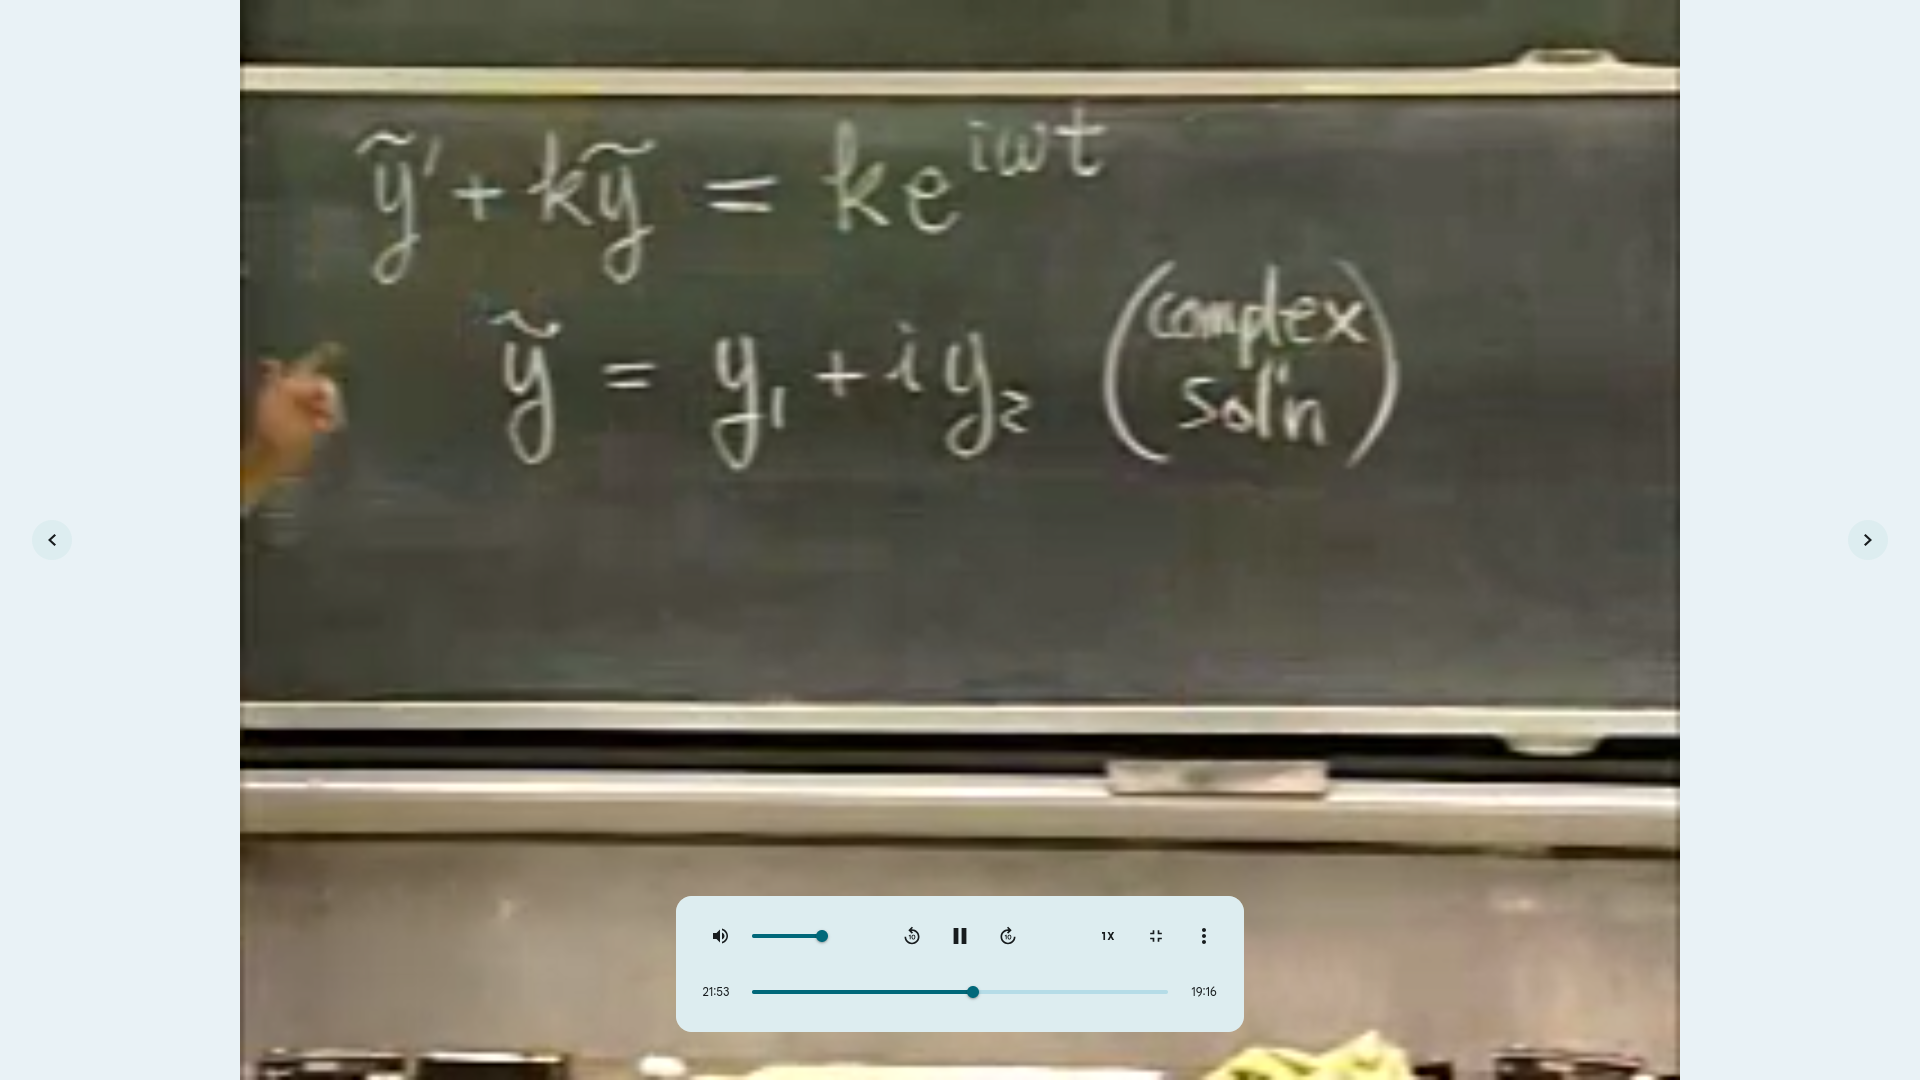 ỹ' + kỹ = ke^{iωt}
ỹ = y₁ + i y₂ (complex sol'n)
10
10
1X
21:53
19:16